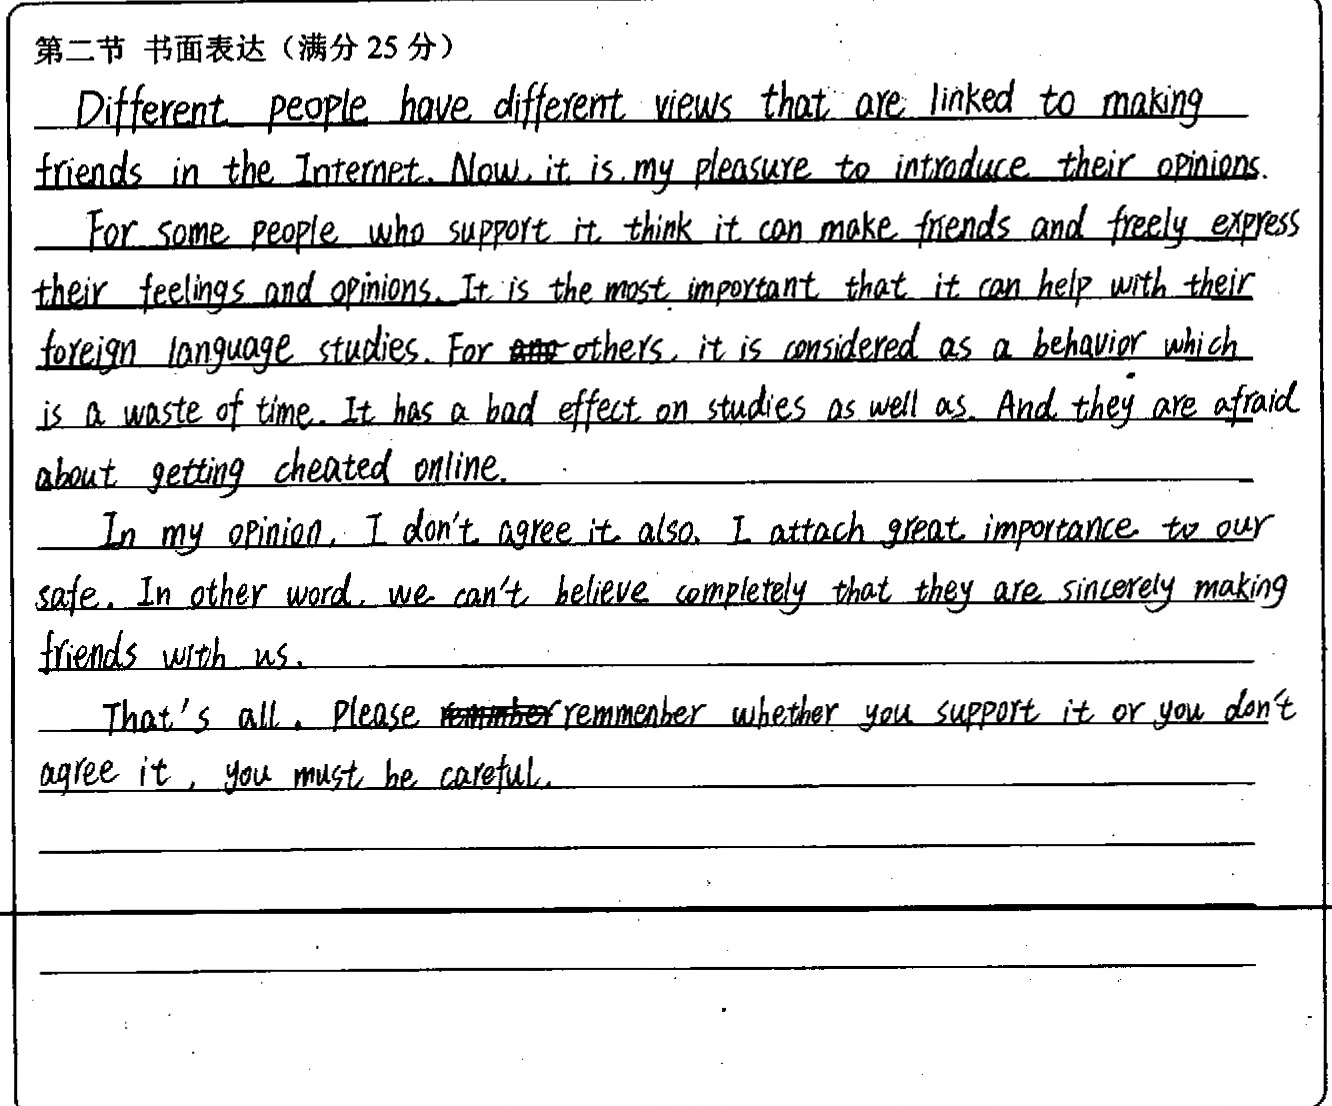 第二节 书面表达（满分 25 分）
Different people have different views that are linked to making
friends in the Internet. Now, it is my pleasure to introduce their opinions.
For some people who support it think it can make friends and freely express
their feelings and opinions. It is the most important that it can help with their
foreign language studies. For others, it is considered as a behavior which
is a waste of time. It has a bad effect on studies as well as. And they are afraid
about getting cheated online.
In my opinion, I don't agree it also. I attach great importance to our
safe. In other word, we can't believe completely that they are sincerely making
friends with us.
That's all. Please remmenber whether you support it or you don't
agree it, you must be careful.